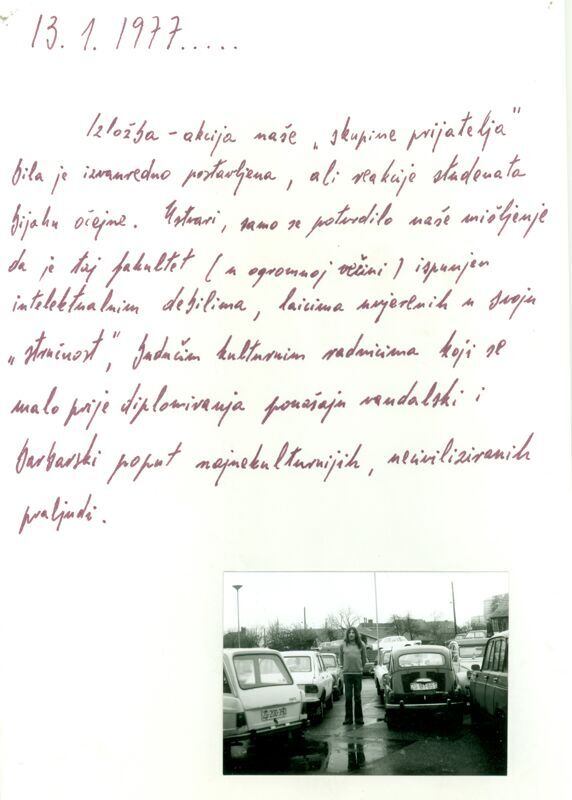 13. 1. 1977.....
Izložba – akcija naše „skupine prijatelja"
bila je izvanredno postavljena, ali reakcije studenata
bijahu očajne. Ustvari, samo se potvrdilo naše mišljenje
da je taj fakultet (u ogromnoj većini) ispunjen
intelektualnim debilima, laicima uvjerenih u svoju
„stručnost", budućim kulturnim radnicima koji se
malo prije diplomiranja ponašaju vandalski i
barbarski poput najnekulturnijih, neciviliziranih
praljudi.